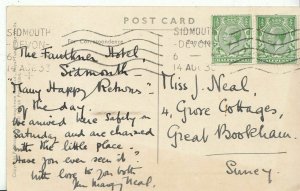 POST CARD
SIDMOUTH
DEVON
6
14 AUG 33
SIDMOUTH
DEVON
6
14 AUG 33
For Correspondence
The Faulkner Hotel,
Sidmouth.
"Many Happy Returns"
of the day.
We arrived here safely on
Saturday and are charmed
with the little place -
Have you ever seen it
with love to you both
Miss J. Neal,
4, Grove Cottages,
Great Bookham,
Surrey.